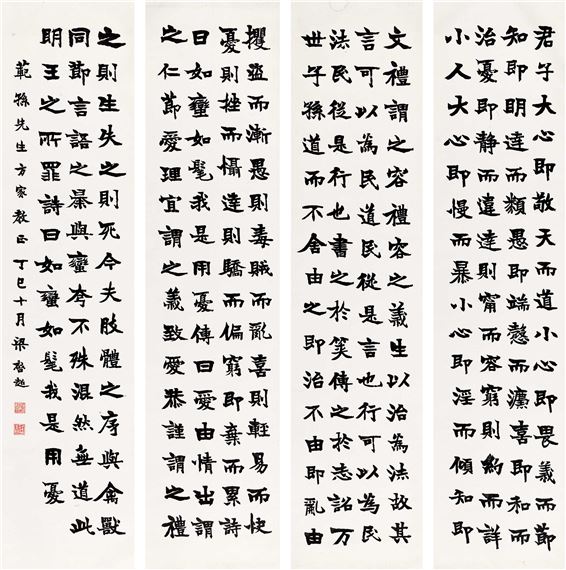 君子大心即敬天而道小心即畏義而節
知即明達而類愚即端愨而灋喜即和而
治憂即静而違達則甯而容窮則約而詳
小人大心即慢而暴小心即淫而傾知即
文禮謂之容禮容之義生以治為法故其
言可以為民道民從是言也行可以為民
法民從是行也書之於筞傳之於志詔万
世子孫道而不舍由之即治不由即亂由
攫盜而漸愚則毒賊而亂喜則輕易而快
憂則挫而懾達則驕而偏窮即棄而累詩
曰如蠻如髦我是用憂傳曰愛由情出謂
之仁節愛理宜謂之義致愛恭謹謂之禮
之則生失之則死今夫肢體之序與禽獸
同節言語之暴與蠻夷不殊混然無道此
明王之所罪詩曰如蠻如髦我是用憂
範孫先生方家教正 丁巳十月梁啟超